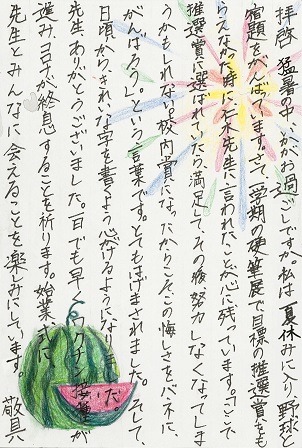 拝啓 猛暑の中、いかがお過ごしですか。私は、夏休みに入り、野球と
宿題をがんばっています。さて、一学期の硬筆展で目標の推選賞をも
らえなかった時に、先生に言われたことが心に残っています。「ここで
推選賞に選ばれていたら、満足して、その後努力しなくなってしま
うかもしれない。校内賞になったからこそ、この悔しさをバネに、
がんばろう。」という言葉です。とてもはげまされました。そして、
日頃から、きれいな字を書くよう心がけるようになりました。
先生、ありがとうございました。一日でも早くワクチン接種が
進み、コロナが終息することを祈ります。始業式に
先生とみんなに会えることを楽しみにしています。 敬具